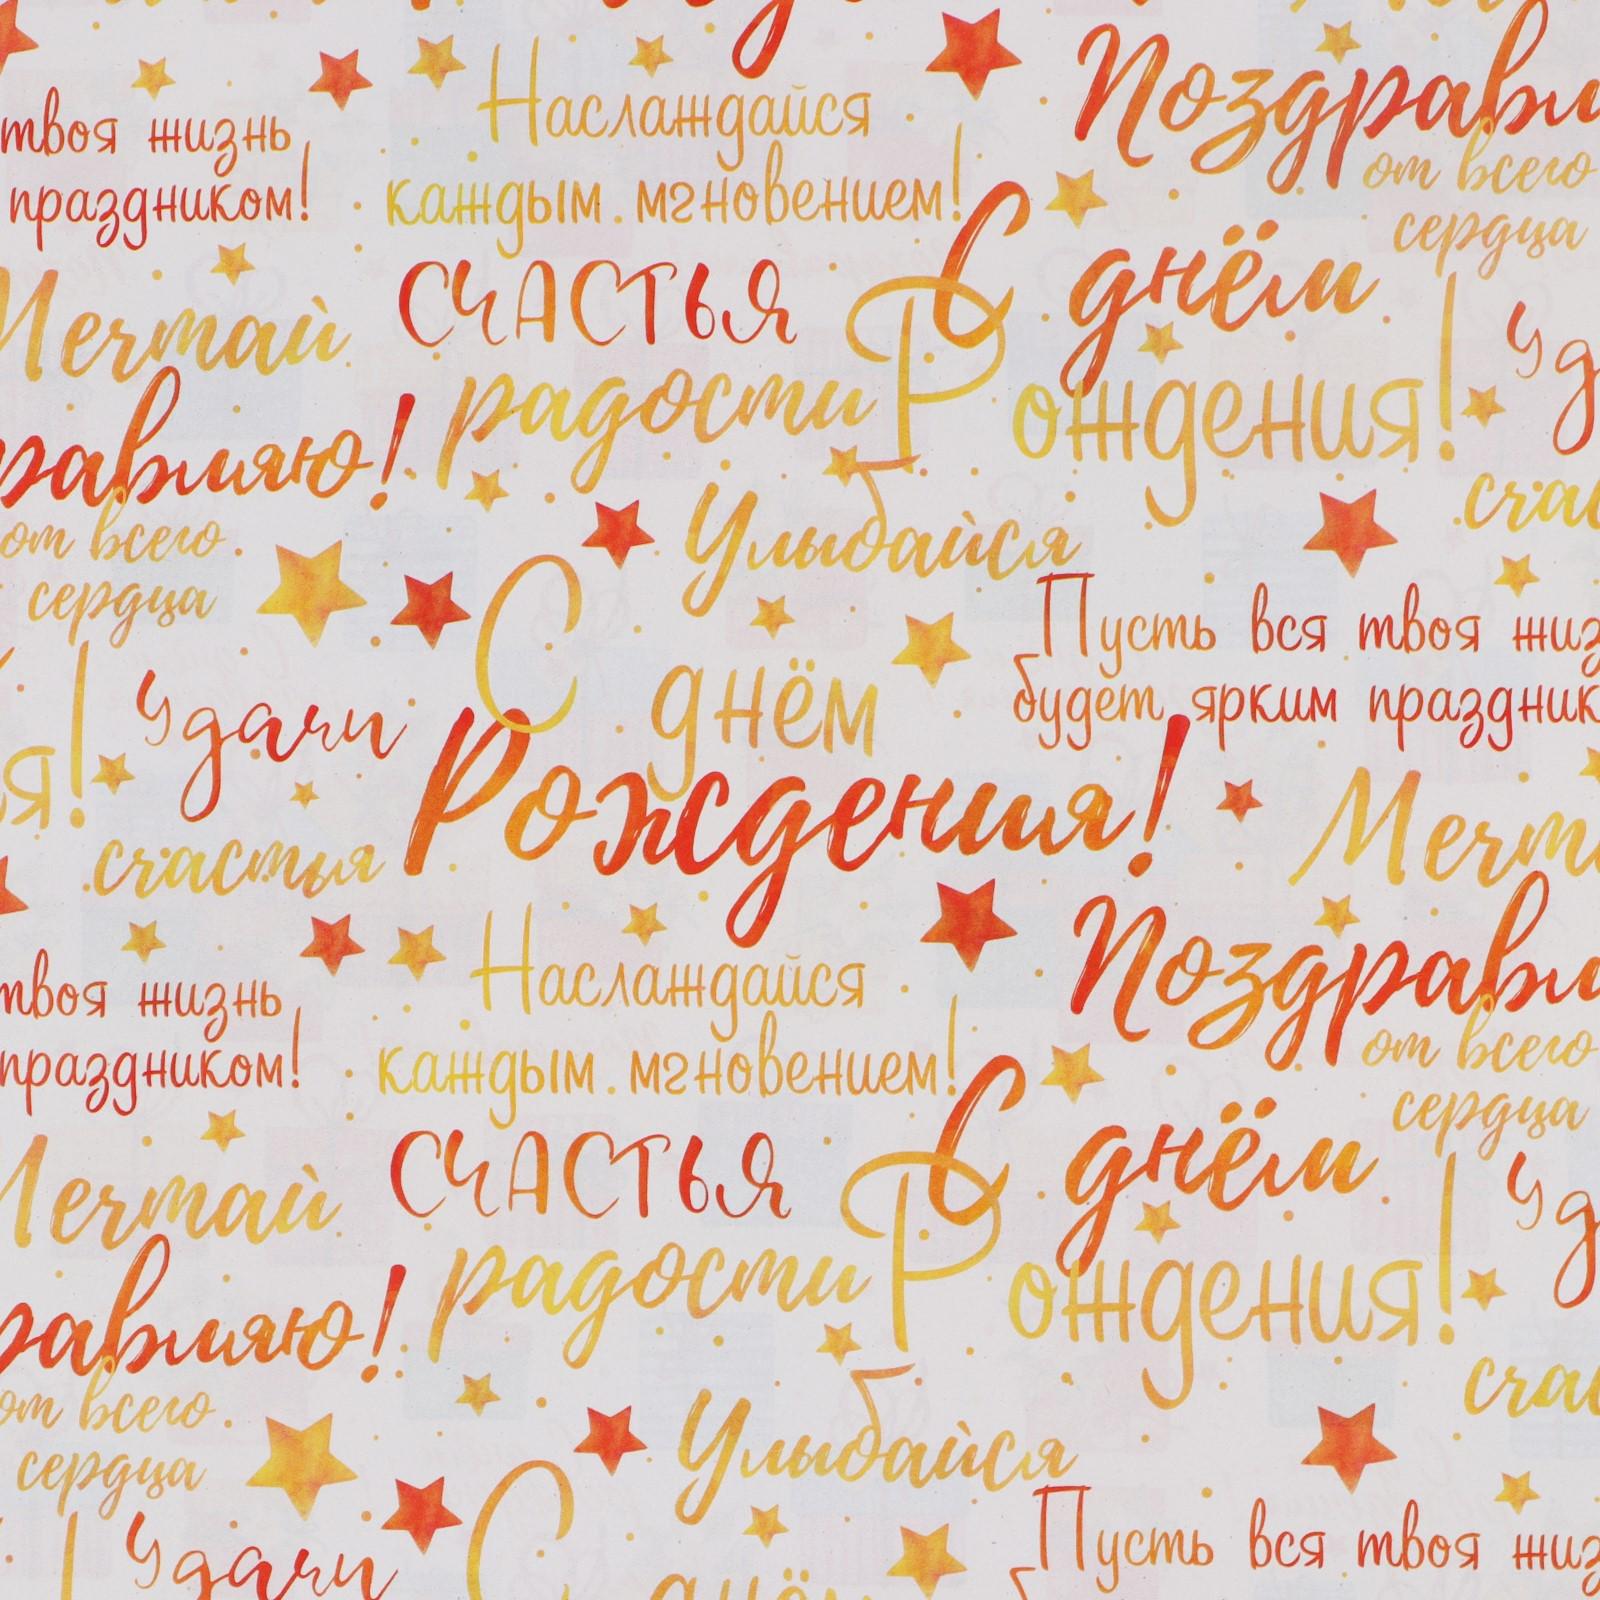 твоя жизнь
праздником!
Наслаждайся
каждым мгновением!
Поздравл
от всего
сердца
Мечтай
СЧАСТЬЯ
радости
С днём
Рождения!
Уд
равляю!
от всего
сердца
Улыбайся
счас
С днём
Рождения!
Пусть вся твоя жиз
будет ярким праздник
я!
Удачи
счастья
Мечт
твоя жизнь
праздником!
Наслаждайся
каждым мгновением!
Поздравл
от всего
сердца
Мечтай
СЧАСТЬЯ
радости
С днём
Рождения!
Уд
равляю!
от всего
сердца
Улыбайся
счас
Удачи
С днём
Пусть вся твоя жиз